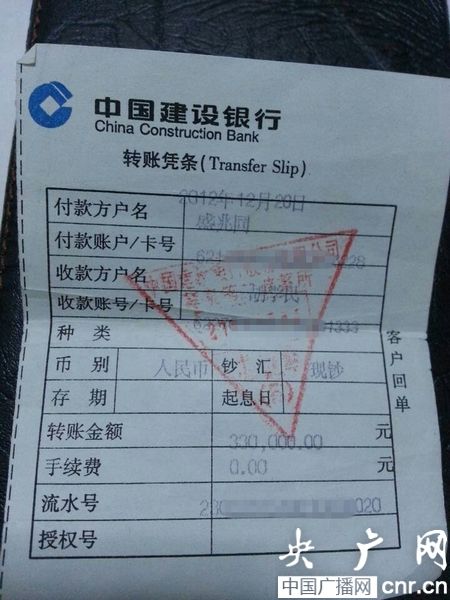 中国建设银行
China Construction Bank
转账凭条(Transfer Slip)
2012年12月20日
付款方户名 盛兆同
付款账户/卡号
收款方户名
收款账号/卡号
种 类
币 别 人民币 钞 汇 现钞
存 期 起息日
转账金额 330,000.00 元
手续费 0.00 元
流水号
授权号
客户回单
央广网
中国广播网 cnr.cn